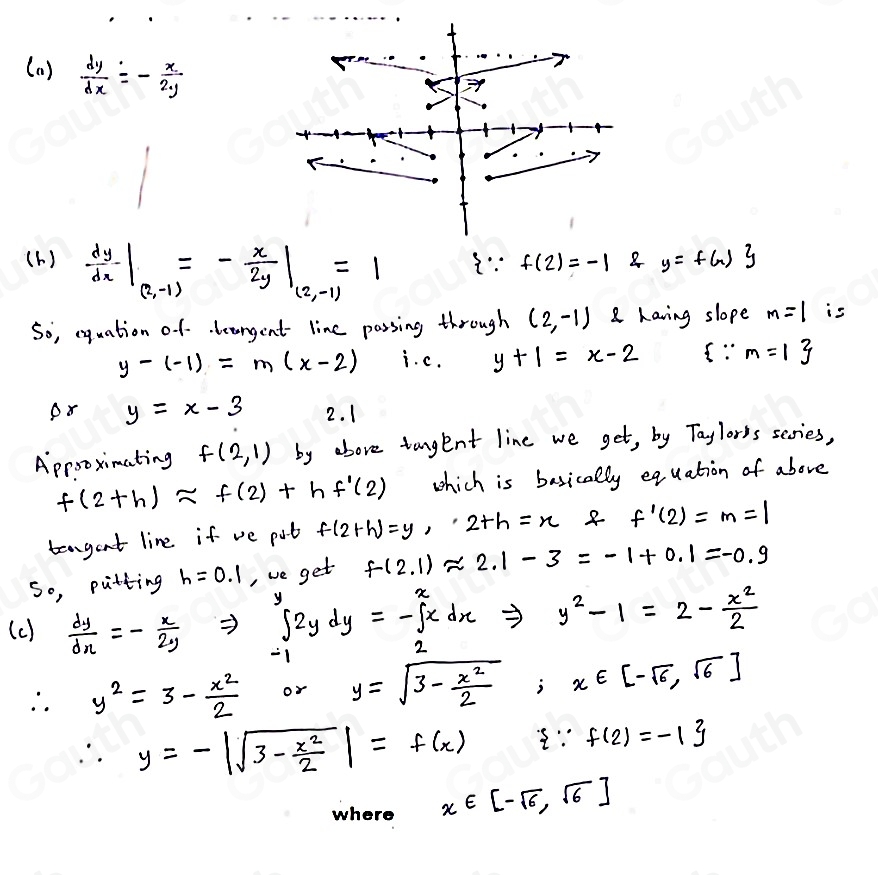 (a) dy/dx = - x/2y
(b) dy/dx |(2,-1) = - x/2y |(2,-1) = 1 {∵ f(2) = -1 & y = f(x)}
So, equation of tangent line passing through (2,-1) & having slope m=1 is
y - (-1) = m (x-2) i.e. y+1 = x-2 {∵ m=1}
or y = x-3
2.1
Approximating f(2,1) by above tangent line we get, by Taylor's series,
f(2+h) ≈ f(2) + h f'(2) which is basically equation of above
tangent line if we put f(2+h)=y, 2+h = x & f'(2) = m = 1
So, putting h = 0.1, we get f(2.1) ≈ 2.1 - 3 = -1 + 0.1 = -0.9
(c) dy/dx = - x/2y ⇒ ∫_{-1}^{y} 2y dy = -∫_{2}^{x} x dx ⇒ y² - 1 = 2 - x²/2
∴ y² = 3 - x²/2 or y = √(3 - x²/2) ; x ∈ [-√6, √6]
∴ y = -|√(3 - x²/2)| = f(x) {∵ f(2) = -1}
where x ∈ [-√6, √6]
Gauth